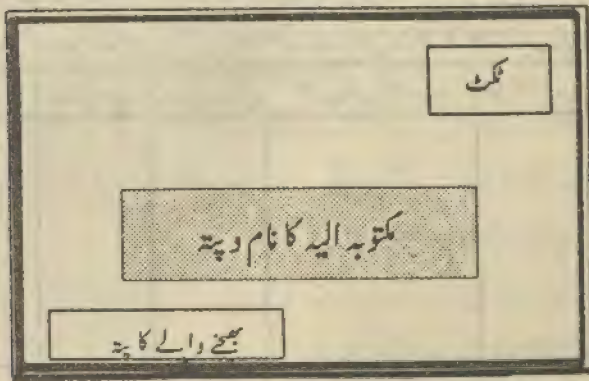 ٹکٹ
مکتوبہ الیہ کا نام و پتہ
بھیجنے والے کا پتہ